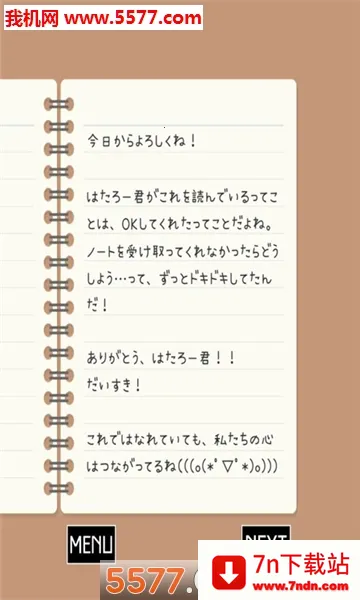 我机网
www.5577.com
今日からよろしくね！
はたろー君がこれを読んでいるってこ
とは、OKしてくれたってことだよね。
ノートを受け取ってくれなかったらどう
しよう…って、ずっとドキドキしてたん
だ！
ありがとう、はたろー君！！
だいすき！
これではなれていても、私たちの心
はつながってるね(((o(*ﾟ▽ﾟ*)o)))
MENU
NEXT
5577.
7n下载站
www.7ndown.com